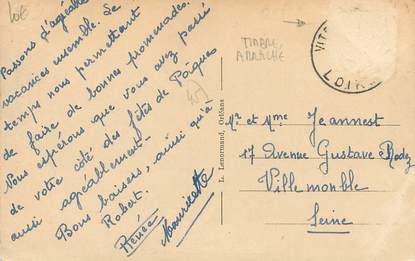 Passons d'agréables
vacances ensemble. Le
temps nous permettant
de faire de bonnes promenades.
Nous espérons que vous avez passé
de votre côté des fêtes de Pâques
aussi agréablement.
Bons baisers, ainsi qu'à
Robert.
Renée Mauricette
L. Lenormand, Orléans
TIMBRE
ARRACHÉ
VIT
LOIR
Mr. et Mme Jeannest
17 Avenue Gustave Rodez
Villemomble
Seine